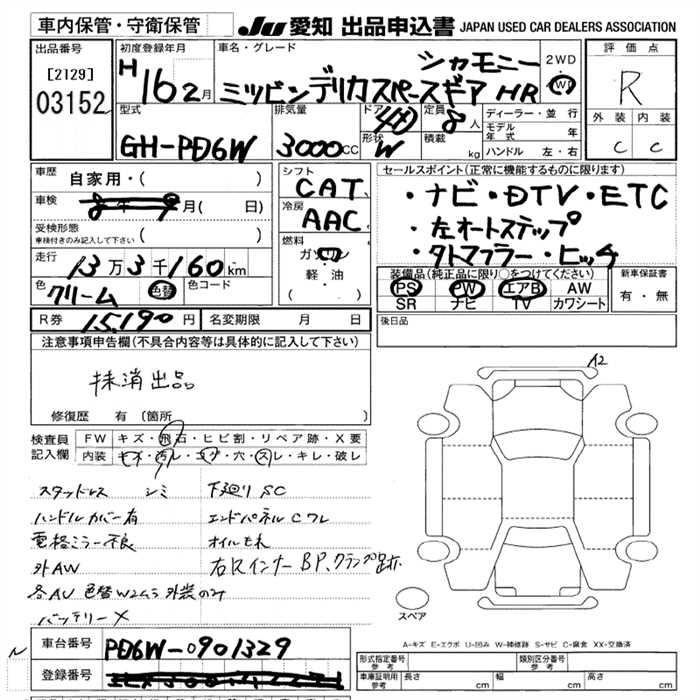 車内保管・守衛保管
JU 愛知 出品申込書 JAPAN USED CAR DEALERS ASSOCIATION
出品番号
[2129]
03152
初度登録年月
H16 2月
車名・グレード
シャモニー
ミツビシデリカスペースギア HR
2WD
評価点
R
外装 内装
C C
型式
GH-PD6W
排気量
3000CC
ドア
4D
形状
W
定員
8人
積載
kg
ディーラー・並行
モデル年式 年
ハンドル 左・右
車歴
自家用・( )
車検
8年9月( 日)
受検形態
車検付きのみ記入して下さい ( )
走行
13万3千160km
色
クリーム
色替
色コード
R券 15,190円
名変期限 月 日
シフト
CAT
冷房
AAC
燃料
ガソリン
軽・油
( )
セールスポイント(正常に機能するものに限ります)
・ナビ・DTV・ETC
・左オートステップ
・タトマフラー・ヒッチ
装備品(純正品に限り○をつけてください)
PS PW エアB AW
SR ナビ TV カワシート
新車保証書
有・無
後日品
注意事項申告欄(不具合内容等は具体的に記入して下さい)
抹消出品
修復歴 有〔箇所 〕
検査員記入欄
FW キズ・飛石・ヒビ割・リペア跡・X要
内装 キズ・汚れ・コゲ・穴・スレ・キレ・破レ
スタッドレス シミ 下廻りSC
ハンドルカバー有 エンドパネルCワレ
電格ミラー不良 オイルもれ
外AW 右Rインナー BP、クランプ跡
各AU 色替W2ムラ 外装のみ
バッテリーX
A2
スペア
A-キズ E-エクボ U-凹み W-補修跡 S-サビ C-腐食 XX-交換済
車台番号 PD6W-0901329
登録番号
形式指定番号
参考
類別区分番号
参考
車庫証明用
参考
長さ cm 幅 cm 高さ cm